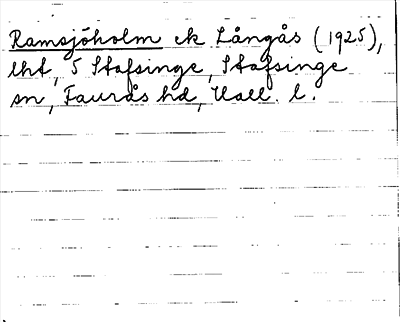 Ramsjöholm ek Långås (1925),
lht, 5 Stafsinge, Stafsinge
sn, Faurås hd, Hall. l.